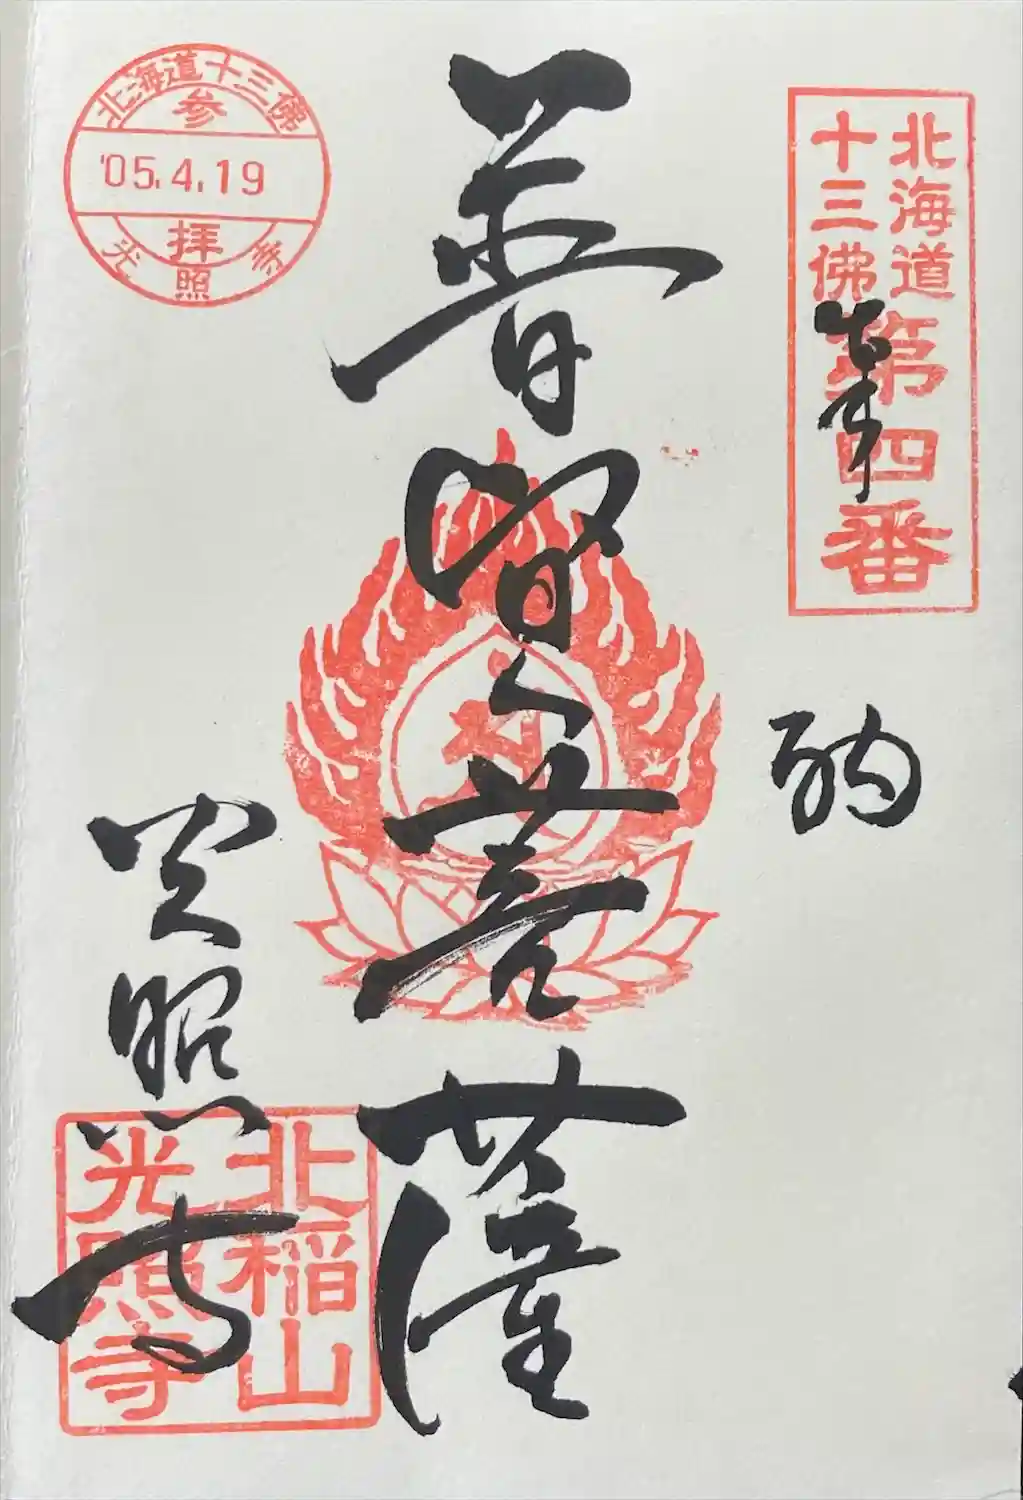 北海道
十三佛
第四番
奉
納
普賢菩薩
北海道十三佛
参
'05.4.19
拝
光照寺
光照寺
北稲山
光照寺